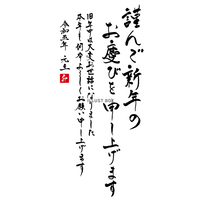 謹んで新年の
お慶びを申し上げます
旧年中は大変お世話になりました
本年も何卒よろしくお願い申し上げます
令和五年 元旦
ILLUST BOX